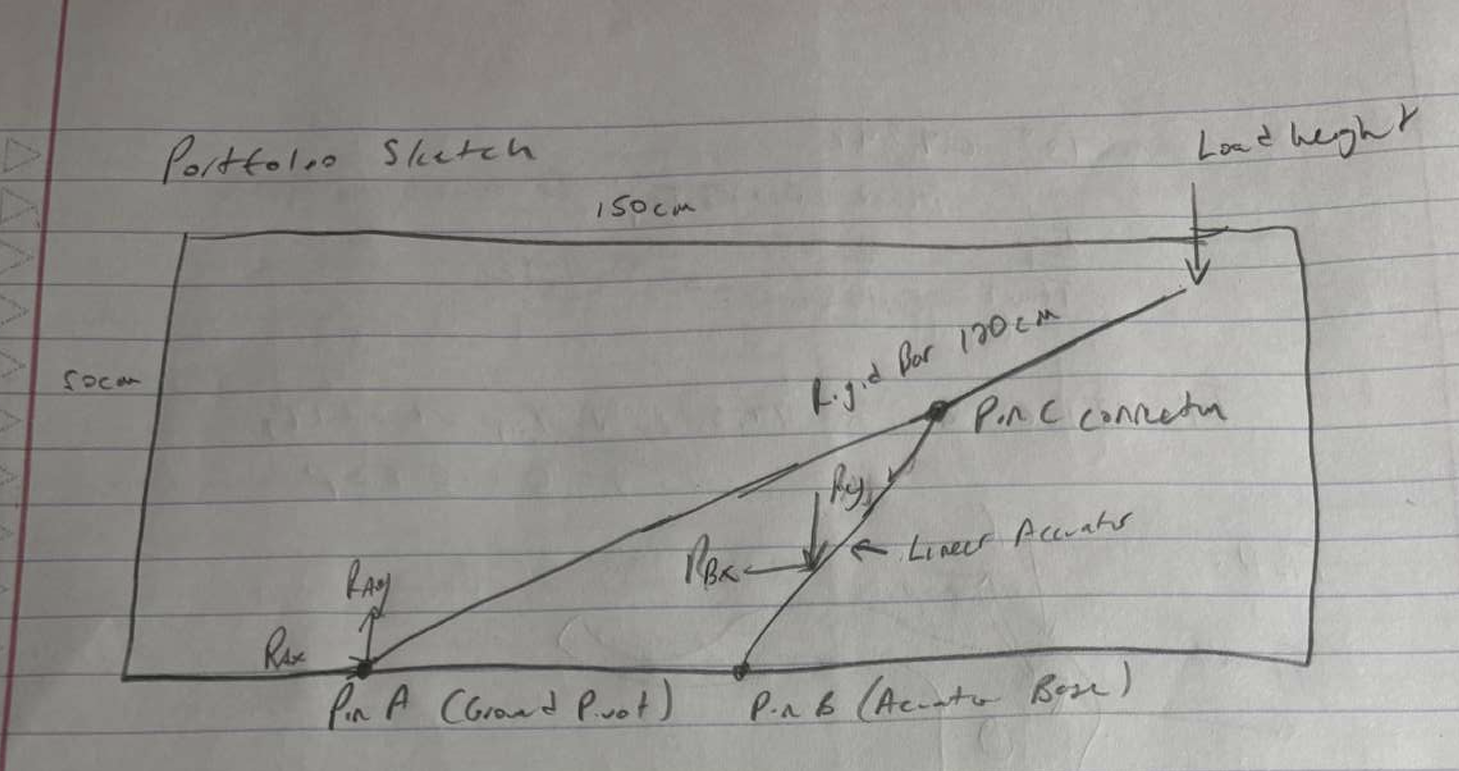 Portfolio Sketch
Load height
150cm
50cm
Rigid Bar 120cm
Pin C connection
RBx
Linear Accuator
RAy
RAx
Pin A (Ground Pivot)
Pin B (Acuator Base)